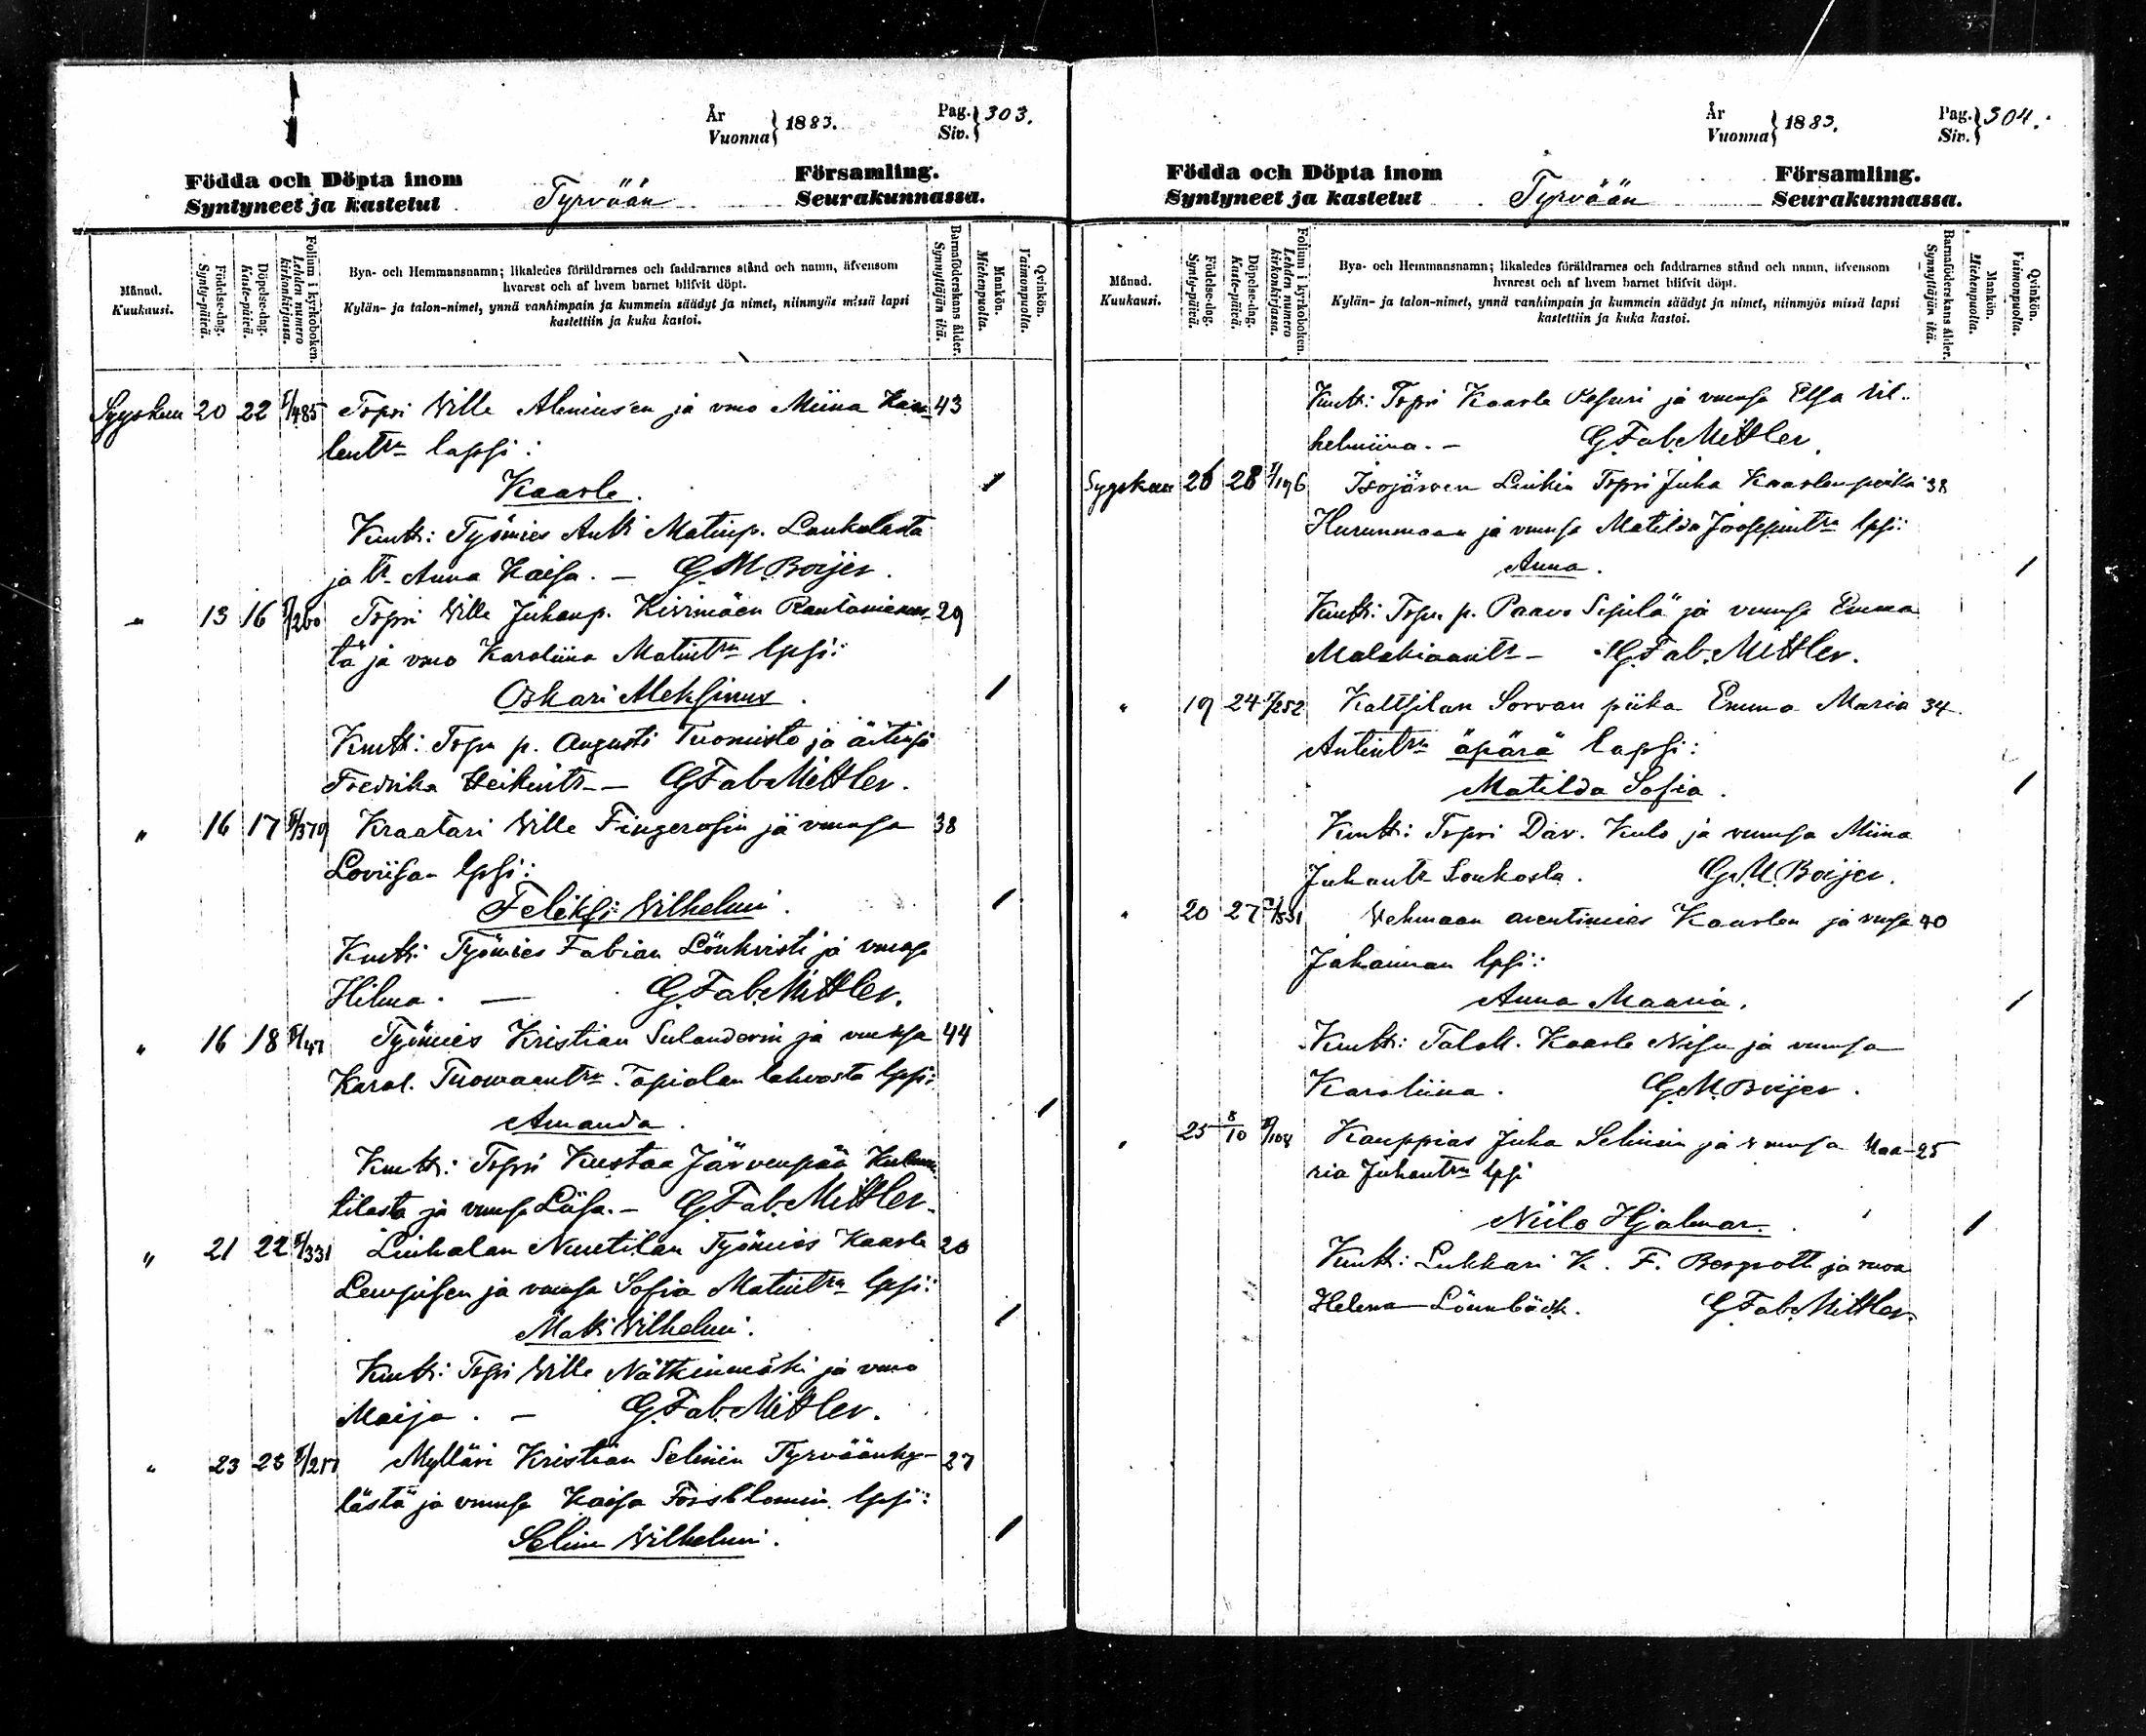 År
Vuonna } 1883.
Pag.
Siv. } 303.
Födda och Döpta inom
Syntyneet ja kastetut
Tyrvään
Församling.
Seurakunnassa.
Månad.
Kuukausi.
Födelse-dag.
Synty-päivä.
Döpelse-dag.
Kaste-päivä.
Folium i kyrkoboken.
Lehden numero kirkonkirjassa.
Bya- och Hemmansnamn; likaledes föräldrarnes och faddrarnes stånd och namn, äfvensom
hvarest och af hvem barnet blifvit döpt.
Kylän- ja talon-nimet, ynnä vanhimpain ja kummein säädyt ja nimet, niinmyös missä lapsi
kastettiin ja kuka kastoi.
Barnaföderskans ålder.
Synnyttäjän ikä.
Mankön.
Miehenpuolia.
Qvinkön.
Vaimonpuolia.
Syyskuu 20 22 Torpri Wille Aleniusen ja vmo Miina 43
lapsi:
Kaarle.
Kmtt: Työmies Antti Matinp. Laukulasta
ja tr Anna Kaisa. — G.M. Boijer.
13 16 Torpri Wille Juhanp. Kivimäen 29
tä ja vmo Karoliina Matintr lpsi:
Oskari Aleksinus.
Kmtt: p. Augusti Tuomisto ja äitinsä
Fredrika Heikintr — G. Fab. Mittler.
" 16 17 Kraatari Wille Fingerosin ja vmonsa 38
Loviisan lpsi:
Feliksi Wilhelmi.
Kmtt: Työmies Fabian Lönkvisti ja vmonsa
Hilma. — G. Fab. Mittler.
" 16 18 Työmies Kristian Sulanderin ja vmonsa 44
Karol. Tuomaantr. Tapiolan lahvosta lpsi:
Amanda.
Kmtt: Torpri Kustaa Järvenpää
tilasta ja vmonsa Liisa. — G. Fab. Mittler.
" 21 22 /331 Liuhalan Nuutilan Työmies Kaarle 20
ja vmonsa Sofia Matintr lpsi:
Matti Wilhelmi.
Kmtt: Torpri Wille Nätkinmäki ja vmo
Maija. — G. Fab. Mittler.
" 23 23 Mylläri Kristian Selinin Tyrväänky- 27
lästä ja vmonsa Kaisa Forsblomin lpsi:
Selim Wilhelmi.
År
Vuonna } 1883.
Pag.
Siv. } 304.
Födda och Döpta inom
Syntyneet ja kastetut
Tyrvään
Församling.
Seurakunnassa.
Månad.
Kuukausi.
Födelse-dag.
Synty-päivä.
Döpelse-dag.
Kaste-päivä.
Folium i kyrkoboken.
Lehden numero kirkonkirjassa.
Bya- och Hemmansnamn; likaledes föräldrarnes och faddrarnes stånd och namn, äfvensom
hvarest och af hvem barnet blifvit döpt.
Kylän- ja talon-nimet, ynnä vanhimpain ja kummein säädyt ja nimet, niinmyös missä lapsi
kastettiin ja kuka kastoi.
Barnaföderskans ålder.
Synnyttäjän ikä.
Mankön.
Miehenpuolia.
Qvinkön.
Vaimonpuolia.
Kmtt: Torpri Kaarle ja vmonsa Elsa Vil-
helmiina. — G. Fab. Mittler.
Syyskuu 26 28 Isojärven Torpri Juha Kaarlenpoika 38
Hurunmaan ja vmonsa Matilda Joosepintr lpsi:
Anna.
Kmtt: p. Paavo Sipilä ja vmonsa Emma
Malakiaantr — G. Fab. Mittler.
" 19 24 /252 Kaltsilan Sorvan piika Emma Maria 34
Antintrn äpärä lapsi:
Matilda Sofia.
Kmtt: Torpri Dav. Kulo ja vmonsa Miina
Juhantr G.M. Boijer.
" 20 27 Vehmaan arentimies Kaarlen ja vmsa 40
Johannan lpsi:
Anna Maaria.
Kmtt: Talok. Kaarle ja vmonsa
Karoliina. G.M. Boijer.
" 25 8/10 Kauppias Juha Selinin ja vmonsa Maa- 25
ria Juhantrn lpsi
Niilo Hjalmar.
Kmtt: Lukkari K. F. Bergroth ja rova
Helena Lönnbäck. G. Fab. Mittler.